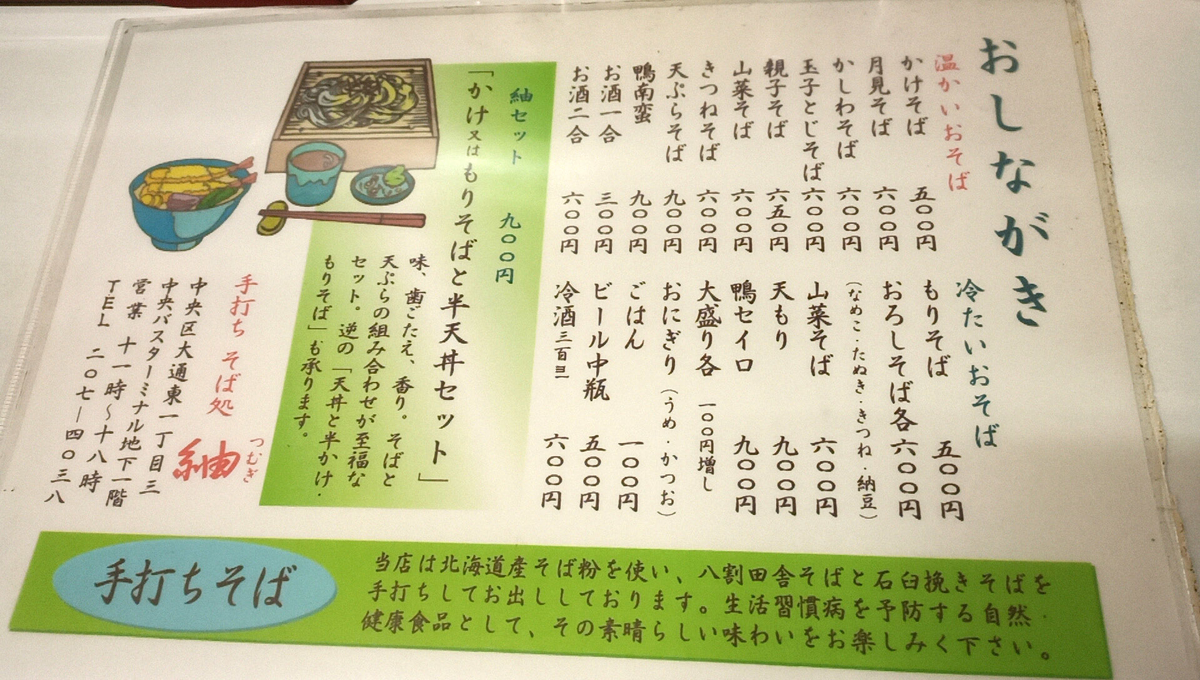 おしながき
温かいおそば
かけそば 五〇〇円
月見そば 六〇〇円
かしわそば 六〇〇円
玉子とじそば 六〇〇円
親子そば 六五〇円
山菜そば 六〇〇円
きつねそば 六〇〇円
天ぷらそば 九〇〇円
鴨南蛮 九〇〇円
お酒一合 三〇〇円
お酒二合 六〇〇円
冷たいおそば
もりそば 五〇〇円
おろしそば各 六〇〇円
(なめこ・たぬき・きつね・納豆)
山菜そば 六〇〇円
天もり 九〇〇円
鴨セイロ 九〇〇円
大盛り各 一〇〇円増し
おにぎり (うめ・かつお)
ごはん 一〇〇円
ビール中瓶 五〇〇円
冷酒 三百ml 六〇〇円
紬セット 九〇〇円
「かけ又はもりそばと半天丼セット」
味、歯ごたえ、香り。そばと
天ぷらの組み合わせが至福な
セット。逆の「天丼と半かけ・
もりそば」も承ります。
手打ち そば処 紬
つむぎ
中央区大通東一丁目三
中央バスターミナル地下一階
営業 十一時～十八時
TEL 二〇七―四〇三八
手打ちそば
当店は北海道産そば粉を使い、八割田舎そばと石臼挽きそばを
手打ちしてお出ししております。生活習慣病を予防する自然・
健康食品として、その素晴らしい味わいをお楽しみく下さい。